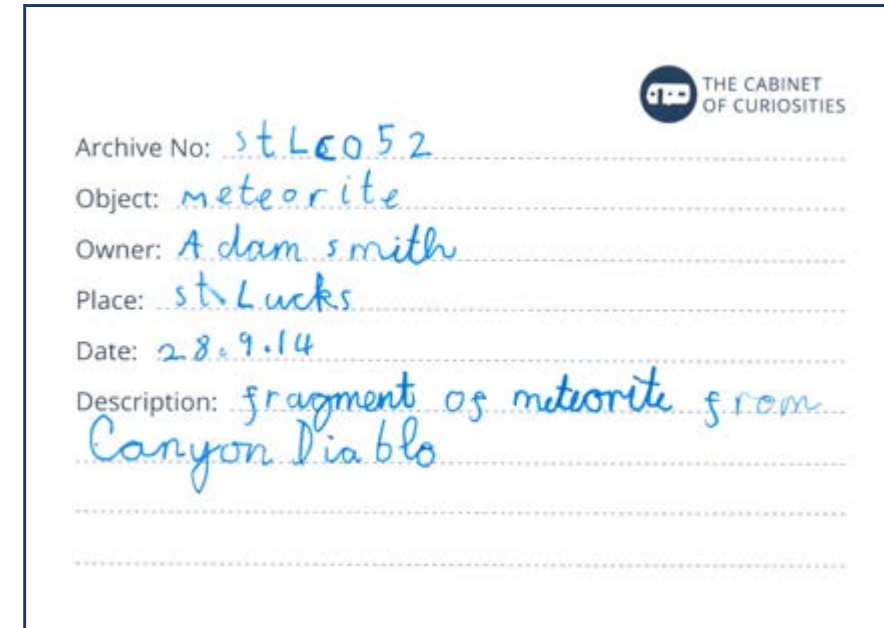 THE CABINET
OF CURIOSITIES
Archive No: stLc052
Object: meteorite
Owner: Adam smith
Place: st Lucks
Date: 28.9.14
Description: fragment of meteorite from
Canyon Diablo